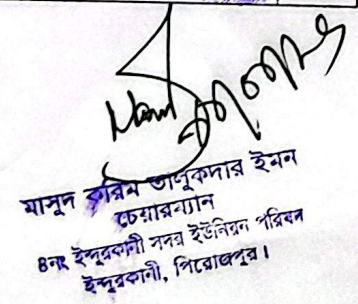 মাসুদ করিম তালুকদার ইমন
চেয়ারম্যান
৪নং ইন্দুরকানী সদর ইউনিয়ন পরিষদ
ইন্দুরকানী, পিরোজপুর।